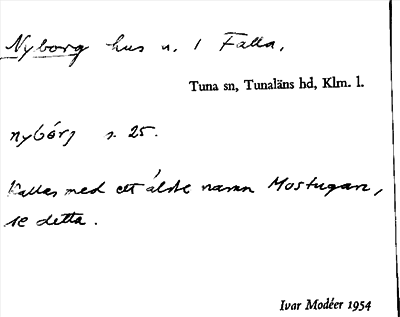 Nyborg hus u. 1 Falla.
Tuna sn, Tunaläns hd, Klm. l.
nybórj s. 25.
Kallas med ett äldre namn Mostugan,
se detta.
Ivar Modéer 1954